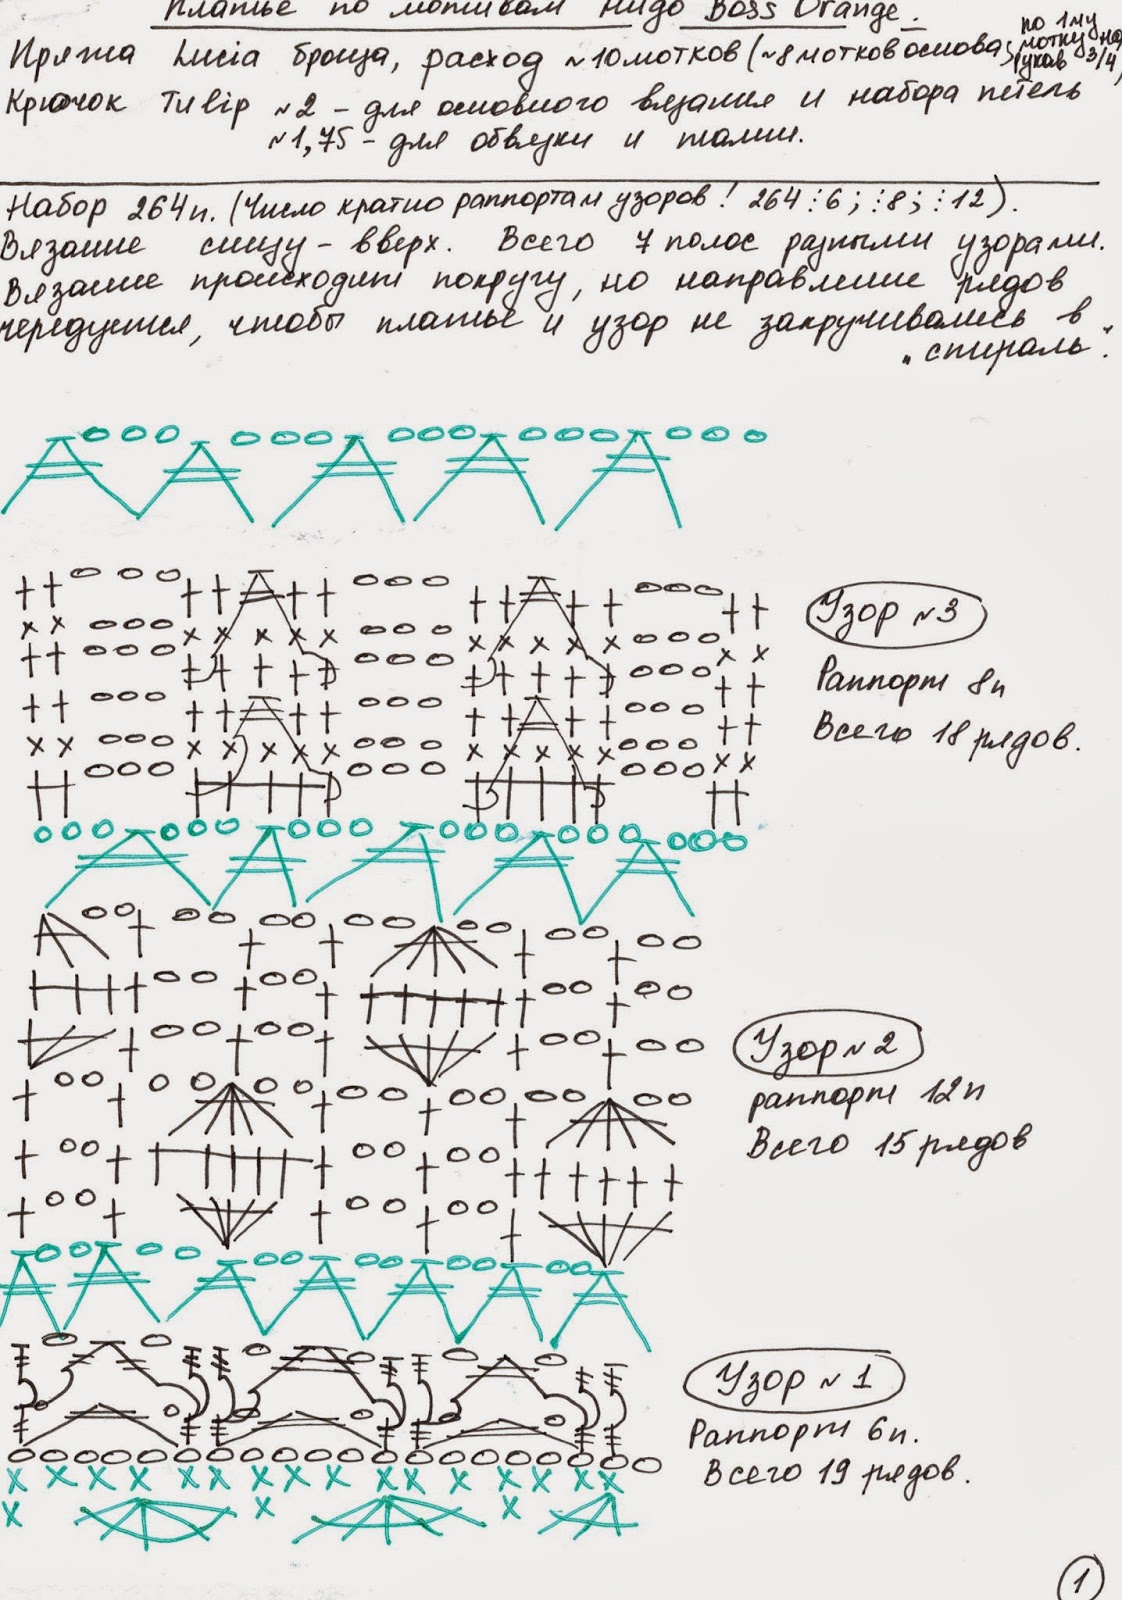 Платье по мотивам Hugo Boss Orange.
Пряжа Lucia броща, расход ~10 мотков (~8 мотков основа; по 1му мотку на рукав 3/4)
Крючок Tulip ~2 - для основного вязания и набора петель
~1,75 - для обвязки и талии.
Набор 264п. (Число кратно раппортам узоров! 264⋮6; ⋮8; ⋮12).
Вязание снизу - вверх. Всего 7 полос разными узорами.
Вязание происходит по кругу, но направление рядов
чередуется, чтобы платье и узор не закручивались в
"спираль".
Узор ~3
Раппорт 8п
Всего 18 рядов.
Узор ~2
раппорт 12п
Всего 15 рядов
Узор ~1
Раппорт 6п.
Всего 19 рядов.
1